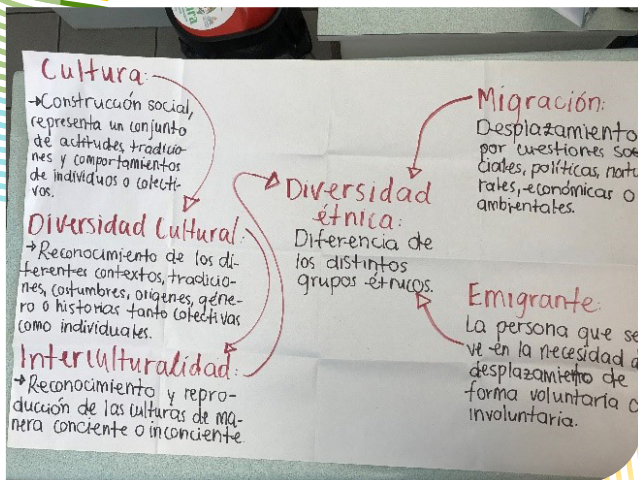 Cultura:
→Construcción social,
representa un conjunto
de actitudes, tradicio-
nes y comportamientos
de individuos o colecti-
vos.
Diversidad Cultural:
→Reconocimiento de los di-
ferentes contextos, tradicio-
nes, costumbres, orígenes, géne-
ro o historias tanto colectivas
como individuales.
Interculturalidad:
→Reconocimiento y repro-
ducción de las culturas de ma-
nera conciente o inconciente
Diversidad
étnica:
Diferencia de
los distintos
grupos étnicos.
Migración:
Desplazamiento
por cuestiones so
ciales, políticas, natu
rales, económicas o
ambientales.
Emigrante:
La persona que se
ve en la necesidad d
desplazamiento de
forma voluntaria o
involuntaria.